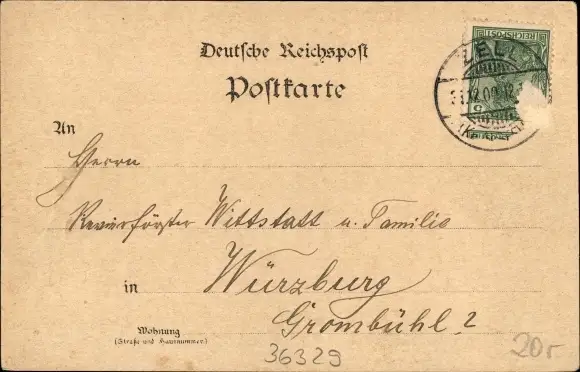 Deutsche Reichspost
Postkarte
REICHSPOST
ZELL
31.12.00.
An
Herrn
Revierförster Wittstatt u. Familie
in Würzburg
Grombühl 2
Wohnung
(Straße und Hausnummer)
36329
20r